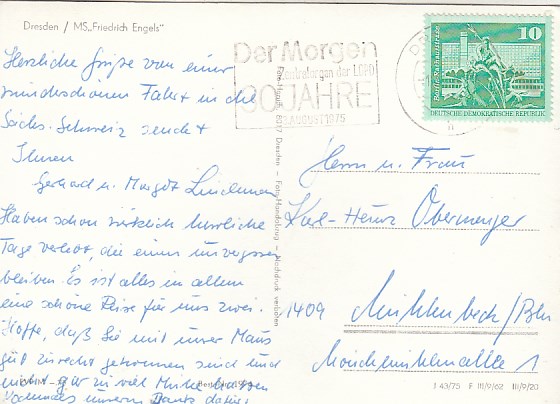 Dresden / MS „Friedrich Engels"
Herzliche Grüße von einer
wunderschönen Fahrt in die
Sächs. Schweiz sendet
Ihnen
Gerhard u. Margot
Haben schon wirklich herrliche
Tage verlebt, die einem unvergessen
bleiben. Es ist alles in allem
eine schöne Reise für uns zwei.
Hoffe, daß Sie mit unser Maus
gut zurecht gekommen sind und
nicht gar zu viel Mühe
unseren Dank dafür
Der Morgen
Zentralorgan der LDPD
30 JAHRE
AUGUST 1975
10
DEUTSCHE DEMOKRATISCHE REPUBLIK
Herrn u. Frau
Karl-Heinz Obermeyer
1409 Mühlenbeck/Bln
Mönchmühlenallee 1
Dresden – Foto-Handabzug – Nachdruck verboten
I 43/75 F III/9/62 III/9/20